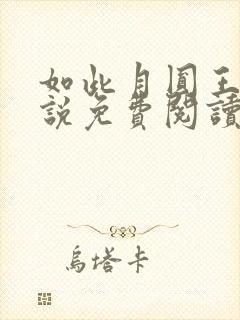 如此自圓王
說免費閱讀
烏塔卡